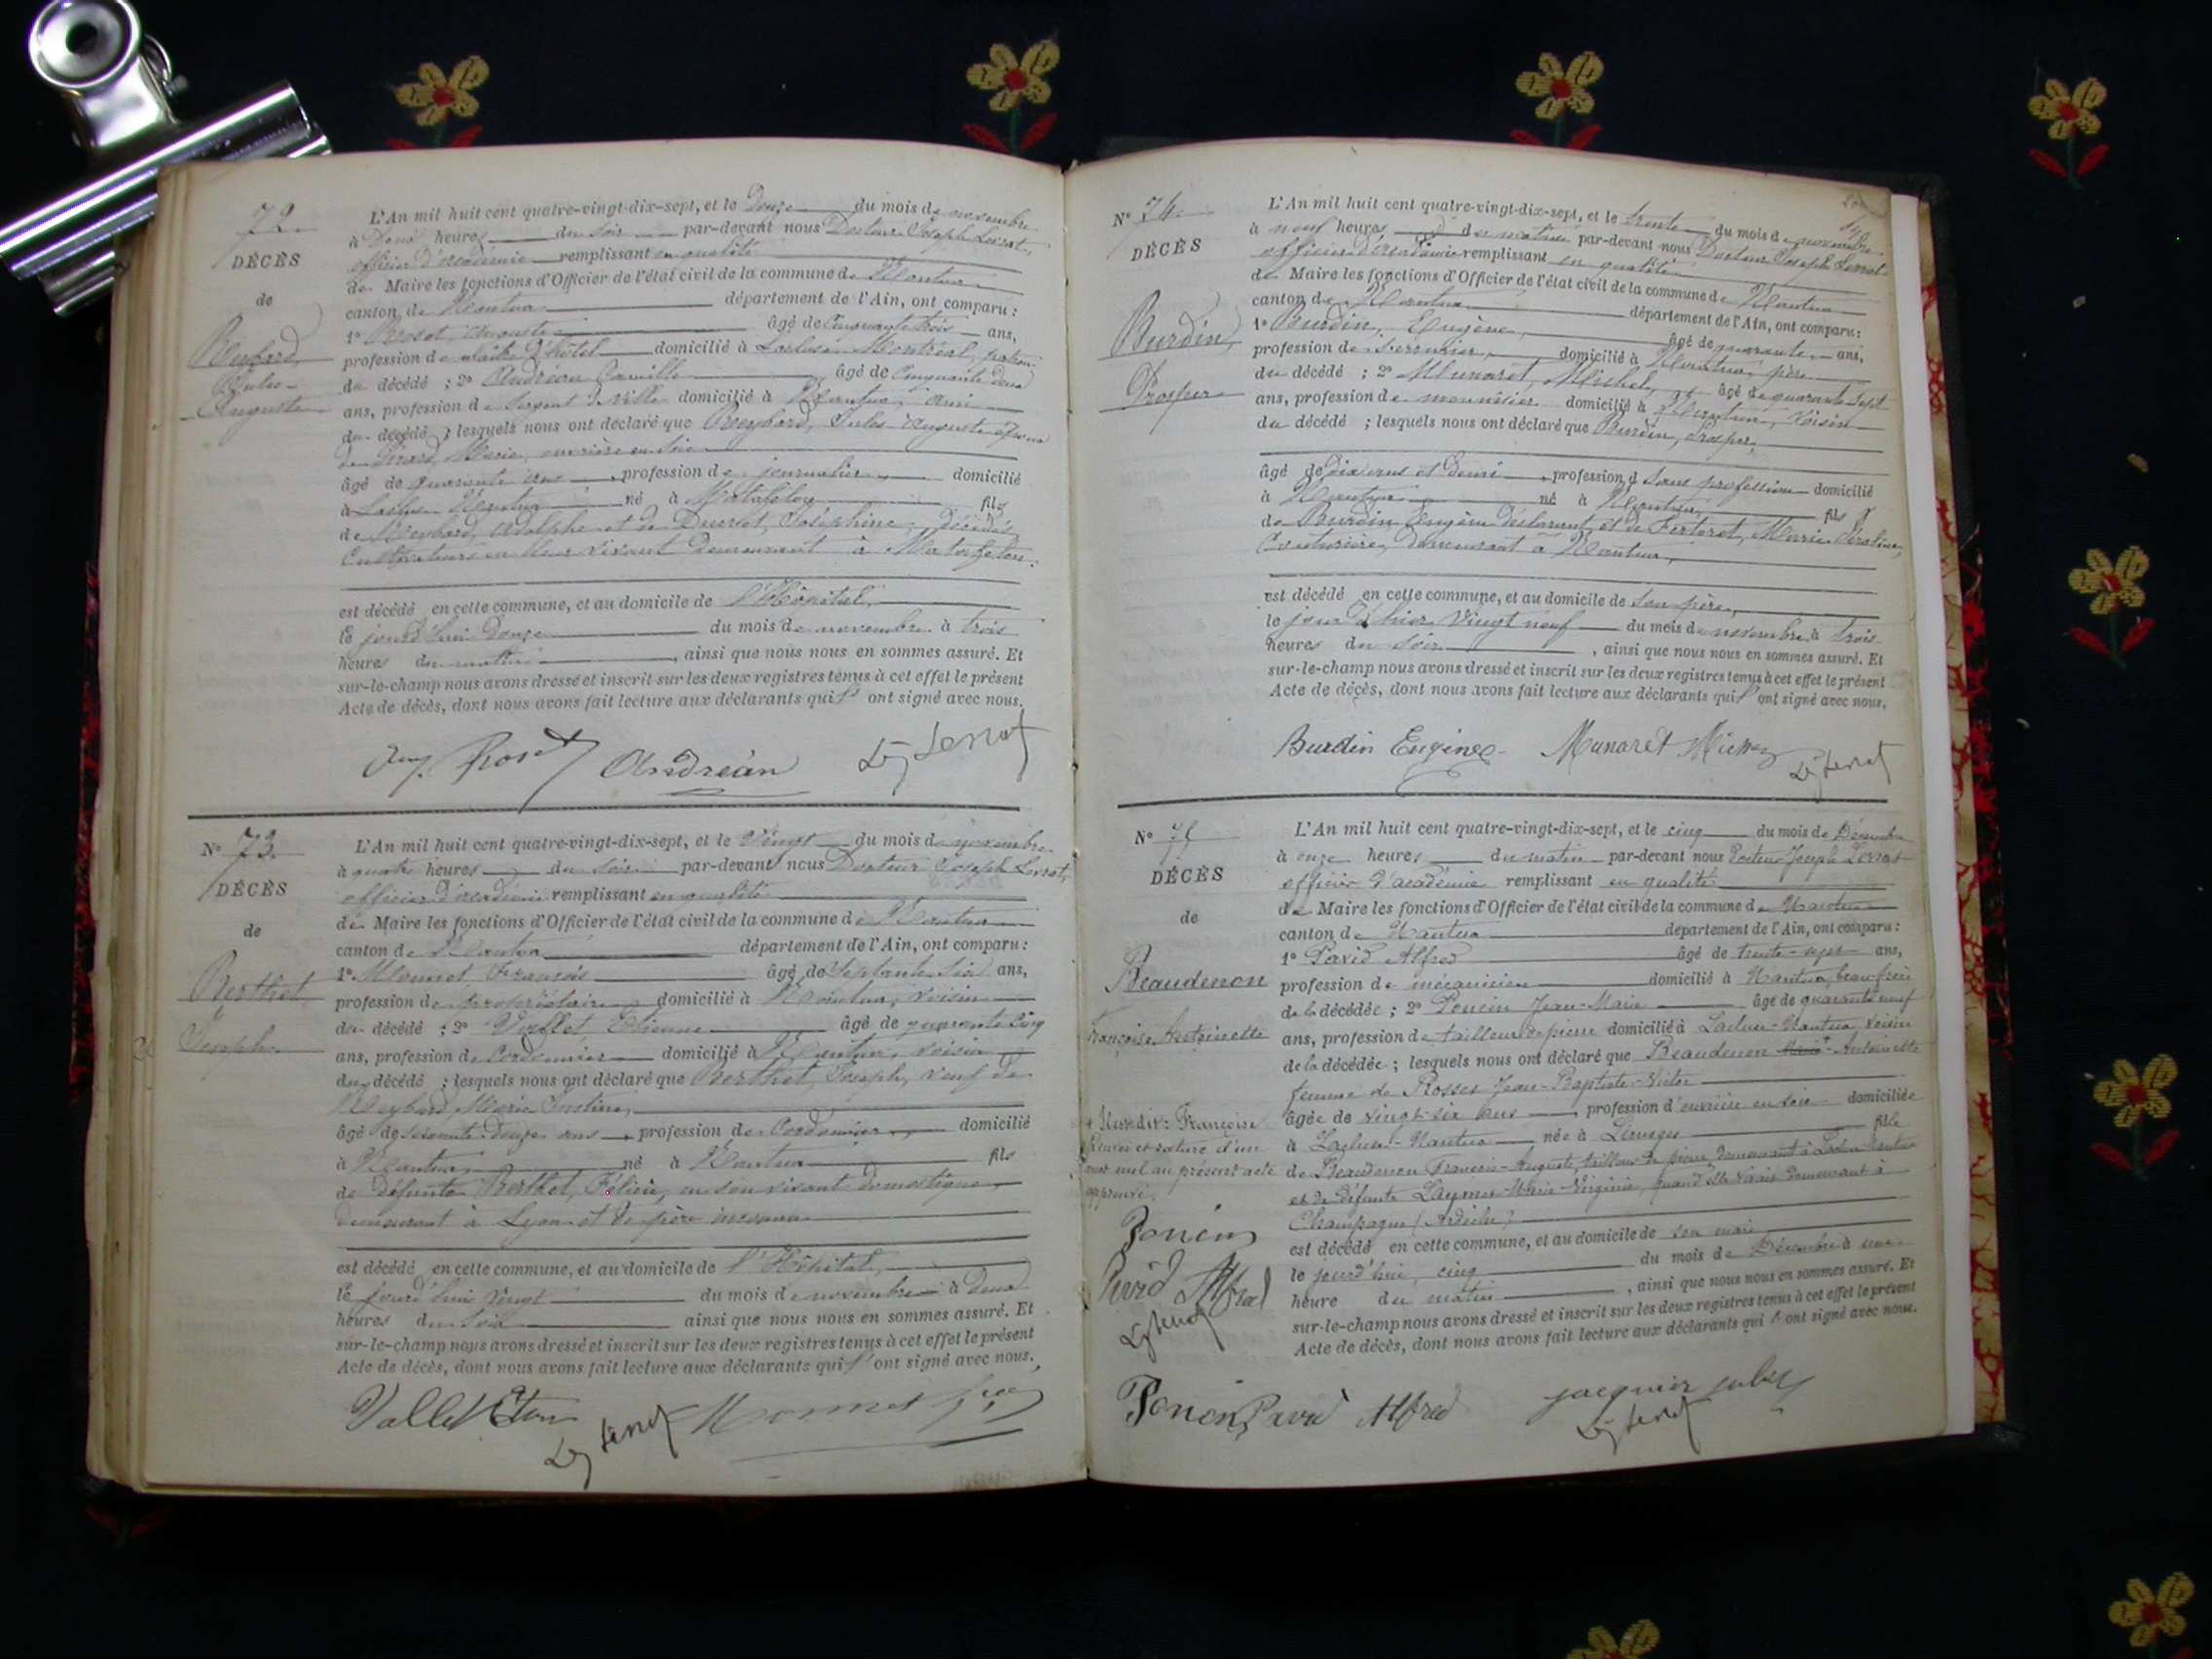 72.
DÉCÈS
de
Reybard
Jules-
Auguste
L'An mil huit cent quatre-vingt-dix-sept, et le Douze du mois de novembre
à Deux heures du soir par-devant nous Docteur Joseph Levrat,
officier d'académie remplissant en qualité
de Maire les fonctions d'Officier de l'état civil de la commune de Nantua
canton de Nantua département de l'Ain, ont comparu :
1° Auguste âgé de Cinquante trois ans,
profession de maître d'hôtel domicilié à Montréal, patron
du décédé ; 2° Andréan Camille âgé de Cinquante deux
ans, profession de Sergent de Ville domicilié à Nantua, ami
du décédé ; lesquels nous ont déclaré que Reybard, Jules-Auguste époux
de Marie, ouvrière en soie
âgé de quarante ans, profession de journalier domicilié
à Nantua né à Matafelon fils
de Reybard, Adolphe et de Joséphine, décédés
Cultivateurs en leur vivant demeurant à Matafelon.
est décédé en cette commune, et au domicile de l'Hôpital,
le jourd'hui Douze du mois de novembre à trois
heures du matin, ainsi que nous nous en sommes assuré. Et
sur-le-champ nous avons dressé et inscrit sur les deux registres tenus à cet effet le présent
Acte de décès, dont nous avons fait lecture aux déclarants qui l' ont signé avec nous.
Andréan
N° 73.
DÉCÈS
de
Berthet
Joseph
L'An mil huit cent quatre-vingt-dix-sept, et le Vingt du mois de novembre
à quatre heures du soir par-devant nous Docteur Joseph Levrat,
officier d'académie remplissant en qualité
de Maire les fonctions d'Officier de l'état civil de la commune de Nantua
canton de Nantua département de l'Ain, ont comparu :
1° Monnet, François âgé de Septante Six ans,
profession de propriétaire domicilié à Nantua, voisin
du décédé ; 2° Vallet Etienne âgé de quarante cinq
ans, profession de Cordonnier domicilié à Nantua, voisin
du décédé ; lesquels nous ont déclaré que Berthet, Joseph, veuf de
Reybard Marie Justine,
âgé de soixante-douze ans, profession de Cordonnier, domicilié
à Nantua né à Nantua fils
de défunte Berthet, Félicie, en son vivant domestique,
demeurant à Lyon et de père inconnu
est décédé en cette commune, et au domicile de l'Hôpital,
le jourd'hui Vingt du mois de novembre à Deux
heures du Soir ainsi que nous nous en sommes assuré. Et
sur-le-champ nous avons dressé et inscrit sur les deux registres tenus à cet effet le présent
Acte de décès, dont nous avons fait lecture aux déclarants qui l' ont signé avec nous.
Vallet Monnet
N° 74.
DÉCÈS
Burdin
Prosper
L'An mil huit cent quatre-vingt-dix-sept, et le trente du mois de novembre
à neuf heures du matin par-devant nous Docteur Joseph Levrat
officier d'académie remplissant en qualité
de Maire les fonctions d'Officier de l'état civil de la commune de Nantua
canton de Nantua département de l'Ain, ont comparu :
1° Burdin, Eugène, âgé de quarante ans,
profession de serrurier, domicilié à Nantua, père
du décédé ; 2° Munaret, Michel, âgé de quarante Sept
ans, profession de menuisier domicilié à Nantua, voisin
du décédé ; lesquels nous ont déclaré que Burdin, Prosper,
âgé de dix ans et demi, profession d Sans profession domicilié
à Nantua né à Nantua, fils
de Burdin Eugène déclarant et de Fertoret, Marie
Couturière, demeurant à Nantua,
est décédé en cette commune, et au domicile de son père,
le jour d'hier Vingt neuf du mois de novembre à trois
heures du soir, ainsi que nous nous en sommes assuré. Et
sur-le-champ nous avons dressé et inscrit sur les deux registres tenus à cet effet le présent
Acte de décès, dont nous avons fait lecture aux déclarants qui l' ont signé avec nous.
Burdin Eugène Munaret
N° 75
DÉCÈS
de
Beaudenon
Françoise Antoinette
L'An mil huit cent quatre-vingt-dix-sept, et le cinq du mois de Décembre
à onze heures du matin par-devant nous Docteur Joseph Levrat
officier d'académie remplissant en qualité
de Maire les fonctions d'Officier de l'état civil de la commune de Nantua
canton de Nantua département de l'Ain, ont comparu :
1° Pavid Alfred âgé de trente-sept ans,
profession de mécanicien domicilié à Nantua, beau-frère
de la décédée ; 2° Poncin Jean-Marie âgé de quarante neuf
ans, profession de tailleur de pierre domicilié à Lacluse-Nantua, voisin
de la décédée ; lesquels nous ont déclaré que Beaudenon Antoinette
femme de Rosset Jean-Baptiste-Victor
âgée de vingt-six ans, profession d'ouvrière en soie domiciliée
à Lacluse-Nantua née à Limoges fille
de Beaudenon François-Auguste, tailleur de pierre demeurant à Lacluse Nantua
et de défunte Marie-Virginie, quand elle vivait demeurant à
Champagne (Ardèche)
est décédé en cette commune, et au domicile de son mari
le jourd'hui, cinq du mois de Décembre à une
heure du matin, ainsi que nous nous en sommes assuré. Et
sur-le-champ nous avons dressé et inscrit sur les deux registres tenus à cet effet le présent
Acte de décès, dont nous avons fait lecture aux déclarants qui l' ont signé avec nous.
+ Françoise
Renvoi et rature d'un
mot nul au présent acte
approuvé.
Poncin
Pavid Alfred
Poncin Pavid Alfred